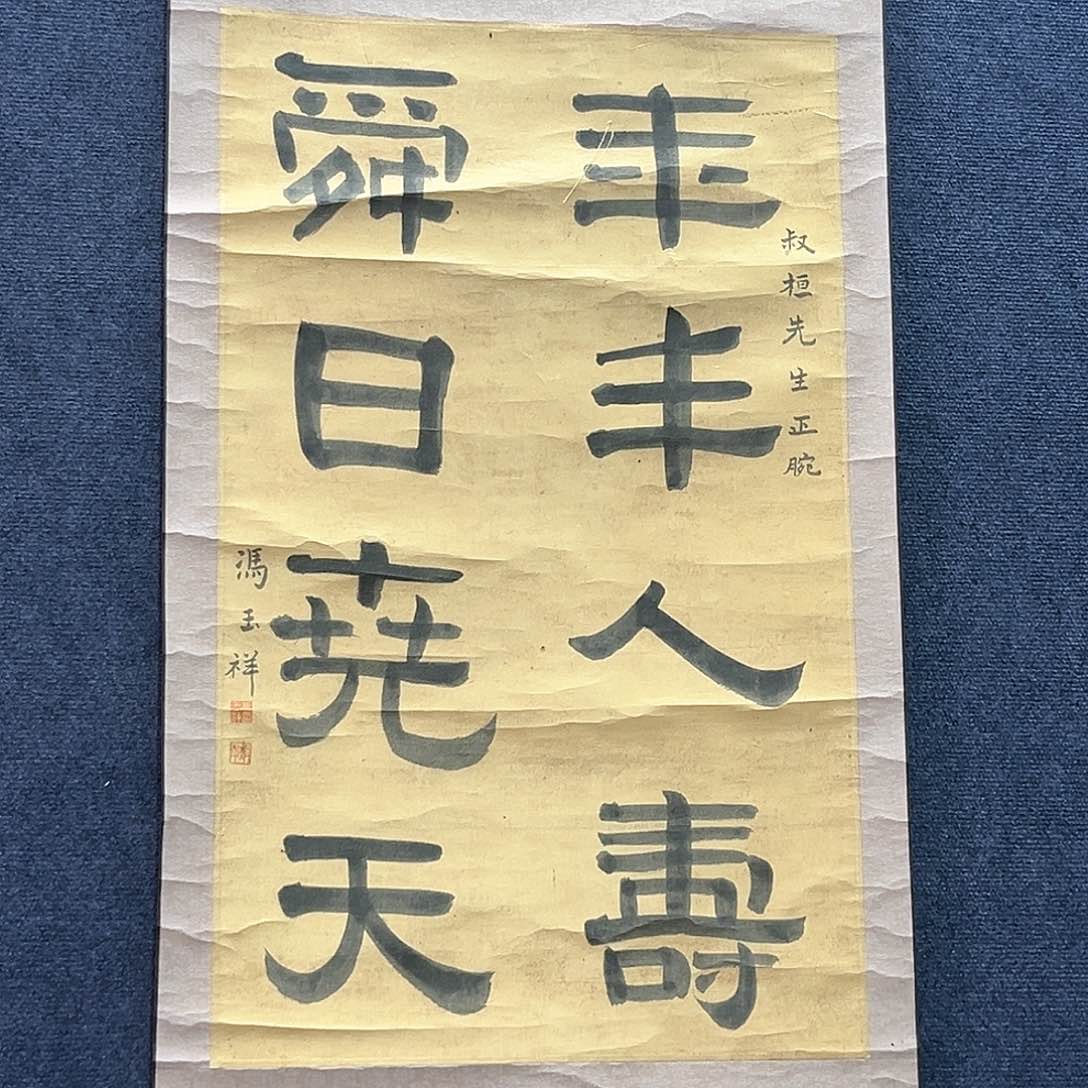 叔桓先生正腕
年丰人壽
舜日尭天
馮玉祥